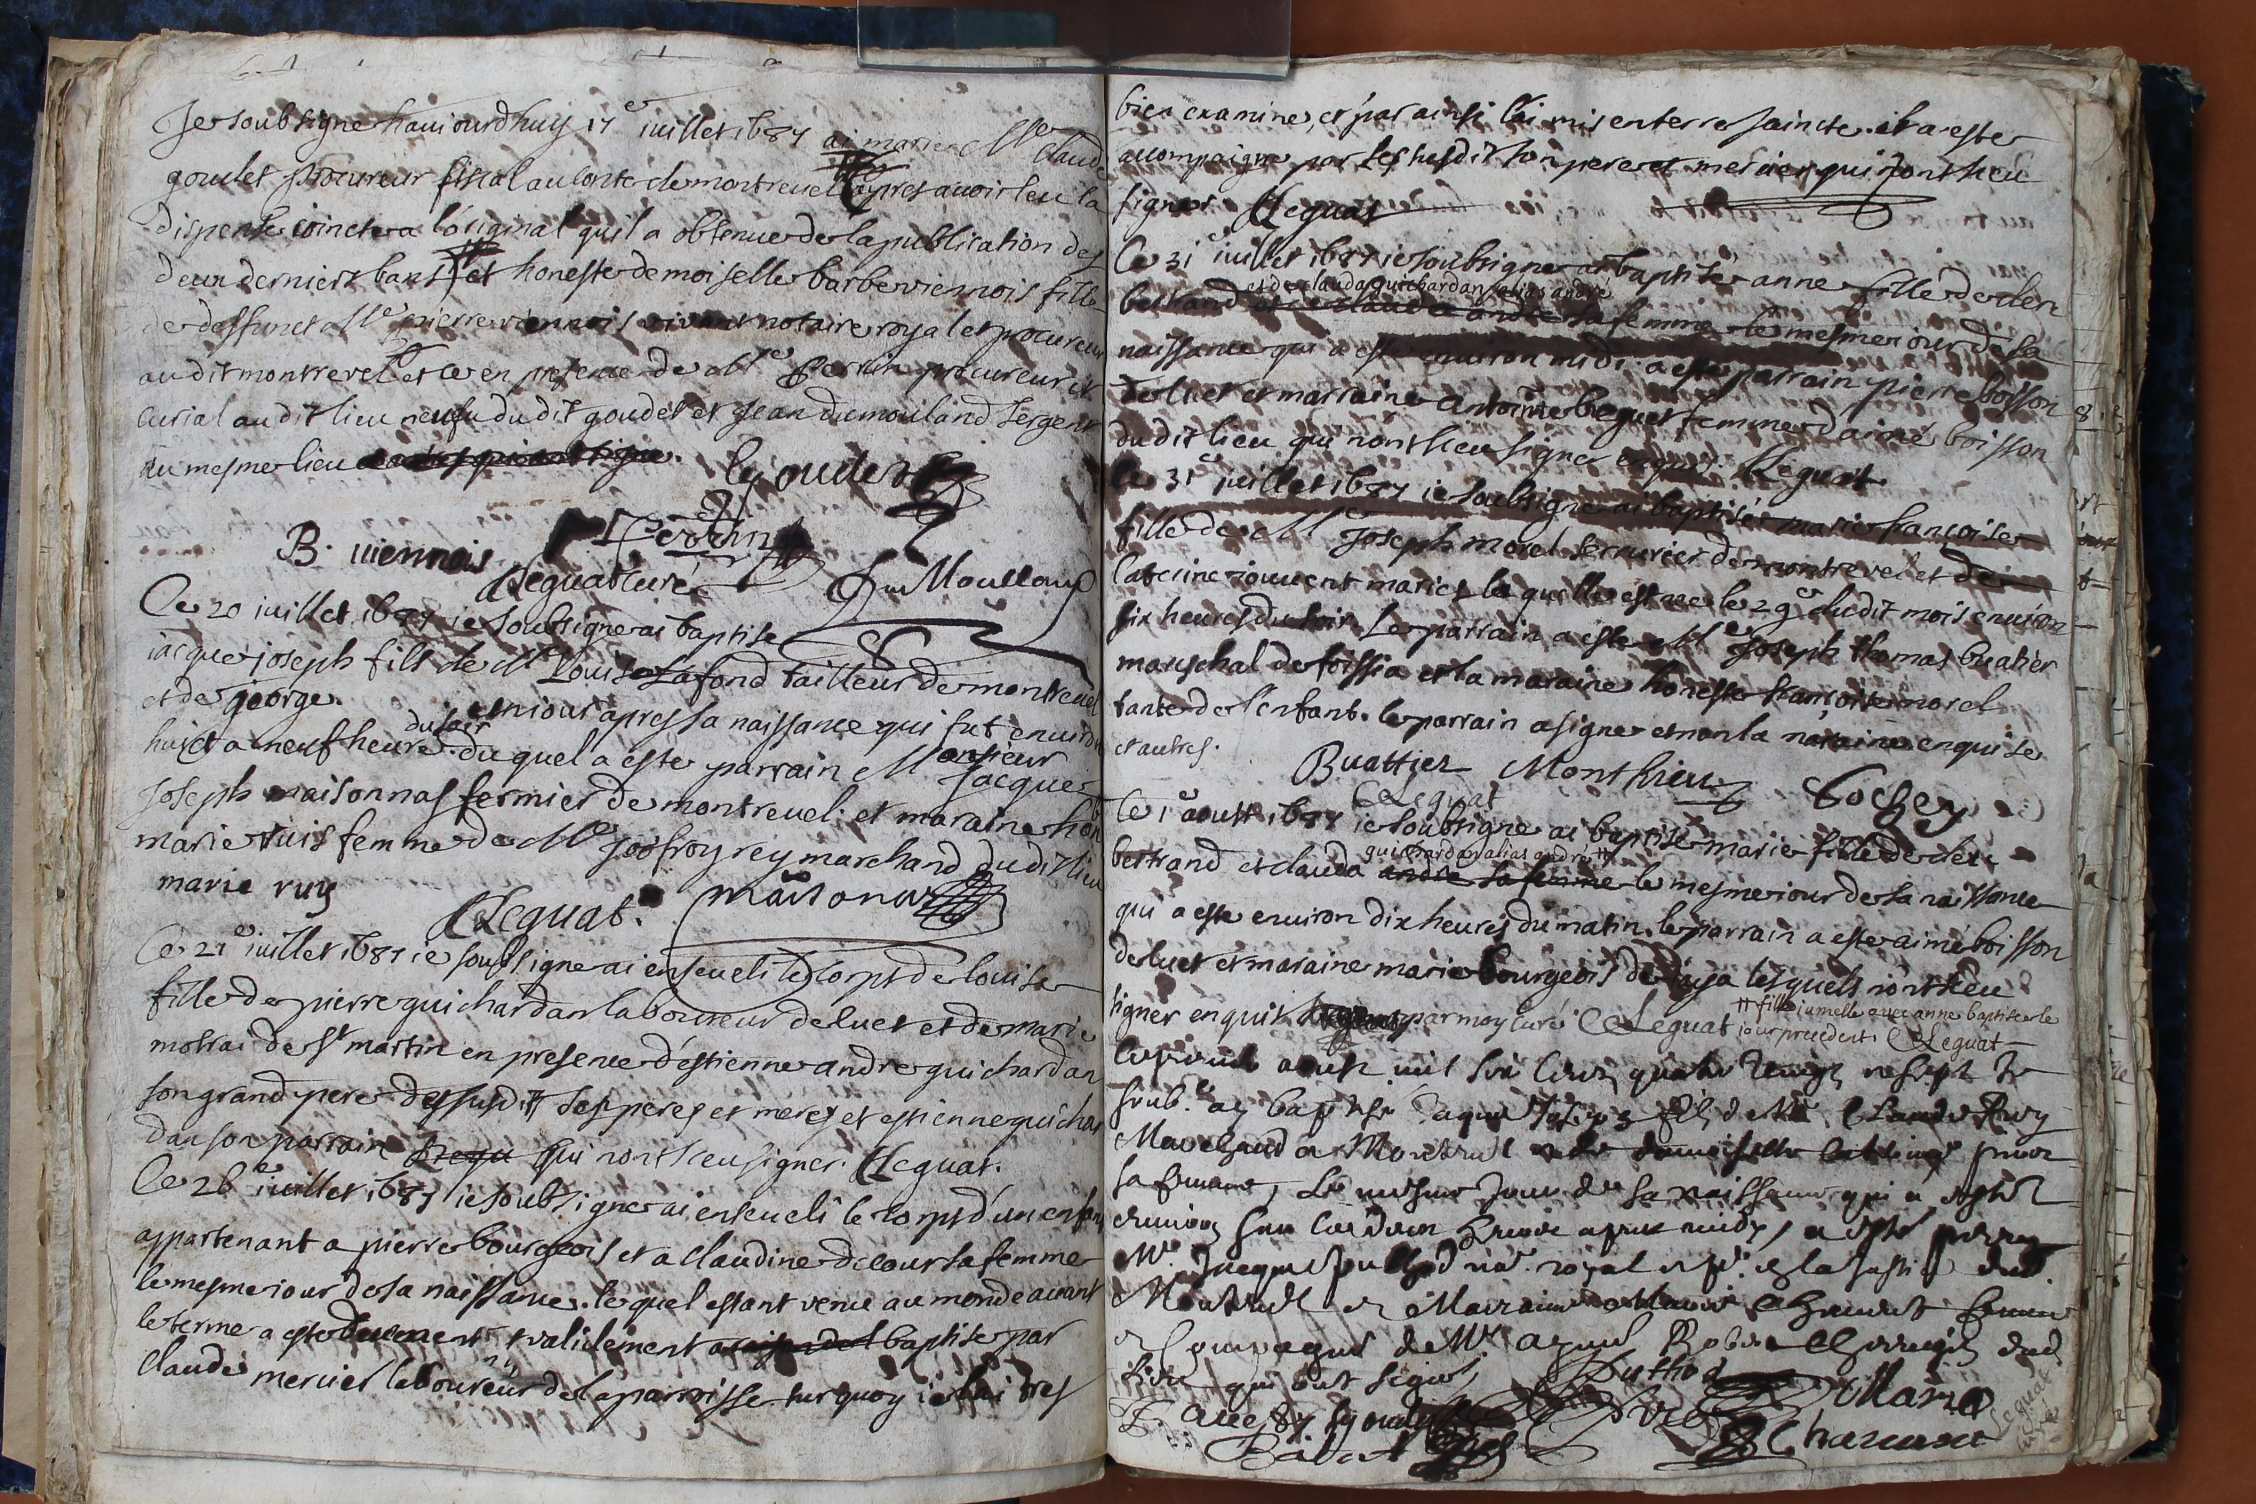 Je soubsigne haujourdhuy 17e juillet 1687 ai marie Mre Claude
goulet procureur fiscal au conte de montrevel apres avoir leu la
dispense joincte a l'original quil a obtenue de la publication des
deux derniers bans et honeste demoiselle barbe viennois fille
de deffunct Mre pierre viennois vivant notaire royal et procureur
audit montrevel et ce en presence de Mre Perrin procureur et
curial audit lieu neufu dudit goudet et Jean dumouland sergent
du mesme lieu
Cl goudet
Perrin
B. viennois
CLeguat curé
Du Moulland
Ce 20 juillet 1687 je soubsigne ai baptise
jacque joseph fils de Mre Louis Lafond tailleur de montrevel
et de george. un jour apres sa naissance qui fut environ
du soir
huict a neuf heure. duquel a este parrain Monsieur Jacque
Joseph maisonnas fermier de montrevel. et maraine hon
marie ruis femme de Mre Joofroy rey marchand dudit lieu
marie ruy
CLeguat.
maisonnas
Ce 21e juillet 1687 je soubsigne ai enseveli le corps de louise
fille de pierre guichardan laboureur de luet et de marie
motrai de St martin en presence d'estienne andre guichardan
son grand pere dessusdit ses peres et meres et estienne guichar
dan son parrain qui n'ont sceu signer. CLeguat.
Ce 26e juillet 1687 je soubsigne ai enseveli le corps d'un enfant
appartenant a pierre bourgeois et a claudine decour sa femme
le mesme jour de sa naissance. lequel estant venu au monde avant
le terme a este validement baptise par
Claude mercier laboureur de la parroisse sur quoy je l'ai tres
bien examine, et par ainsi l'ai mis en terre saincte. et a este
accompaigne par les susdit son pere et mercier qui n'ont sceu
signer CLeguat
Ce 31e juillet 1687 je soubsigne ai baptisé anne fille de clen
et de clauda guichardan alias andre
bertrand sa femme le mesme jour de sa
naissance qui a este environ midi. a este parrain pierre boisson
de luet et marraine antoine beguet femme d'aimé boisson
dudit lieu qui n'ont sceu signer enquis. CLeguat
Ce 31e juillet 1687 je soubsigne ai baptisé marie francoise
fille de Mre Joseph morel serrurier de montrevel et de
Caterine jouvent maries la quelle est nee le 29e dudit mois environ
six heures du soir. Le parrain a este Mre Joseph thomas buatier
mareschal de foissia et la maraine honeste francoise morel
tante de l'enfant. le parrain a signe et non la maraine enquise
et autres.
Buattier Monthieu Cochey
CLeguat
Ce 1e aoust 1687 je soubsigne ai baptisé marie fille de clen
guichardan alias andre
bertrand et clauda andre sa femme le mesme jour de sa naissance
qui a este environ dix heures du matin. le parrain a este aimé boisson
de luet et maraine marie bourgeois de lesquels n'ont sceu
signer enquis par moy curé CLeguat
fille jumelle avec anne baptisee le
jour precedent. CLeguat
Ce premier aoust mil six cens quatre vingt et sept je
soub.e ay baptisé Jaque fils de Mre Claude Rey
Marchand a Montrevel et de damoiselle Catherine
sa femme, Le mesme Jour de sa naissance qui a esté
environ heure apres midy, a esté parrain
Mre Jacque royal et de la Justice dud.
Montrevel et Marraine
de Mre dud.
Lieu qui ont signé,
Marie
Charcueset